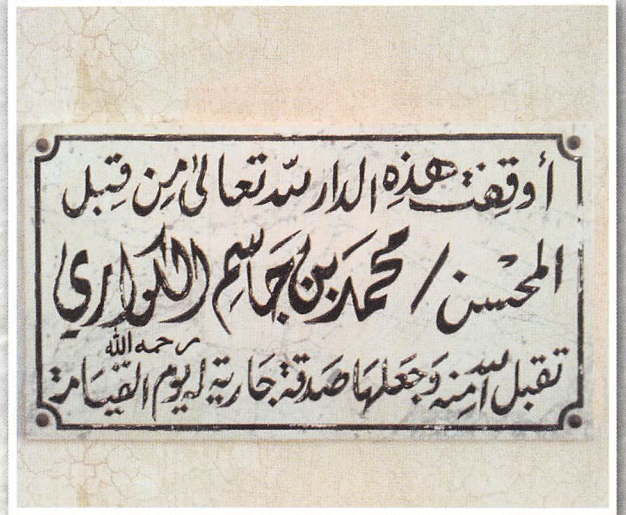 أوقِفت هذِه الدار لله تعالىٰ مِن قِبل
المحسن / محمد بن جَاسِم الكواري
رحمه الله
تقبل الله مِنه وَجَعلهَا صَدقة جَارية له يَوم القيَامة